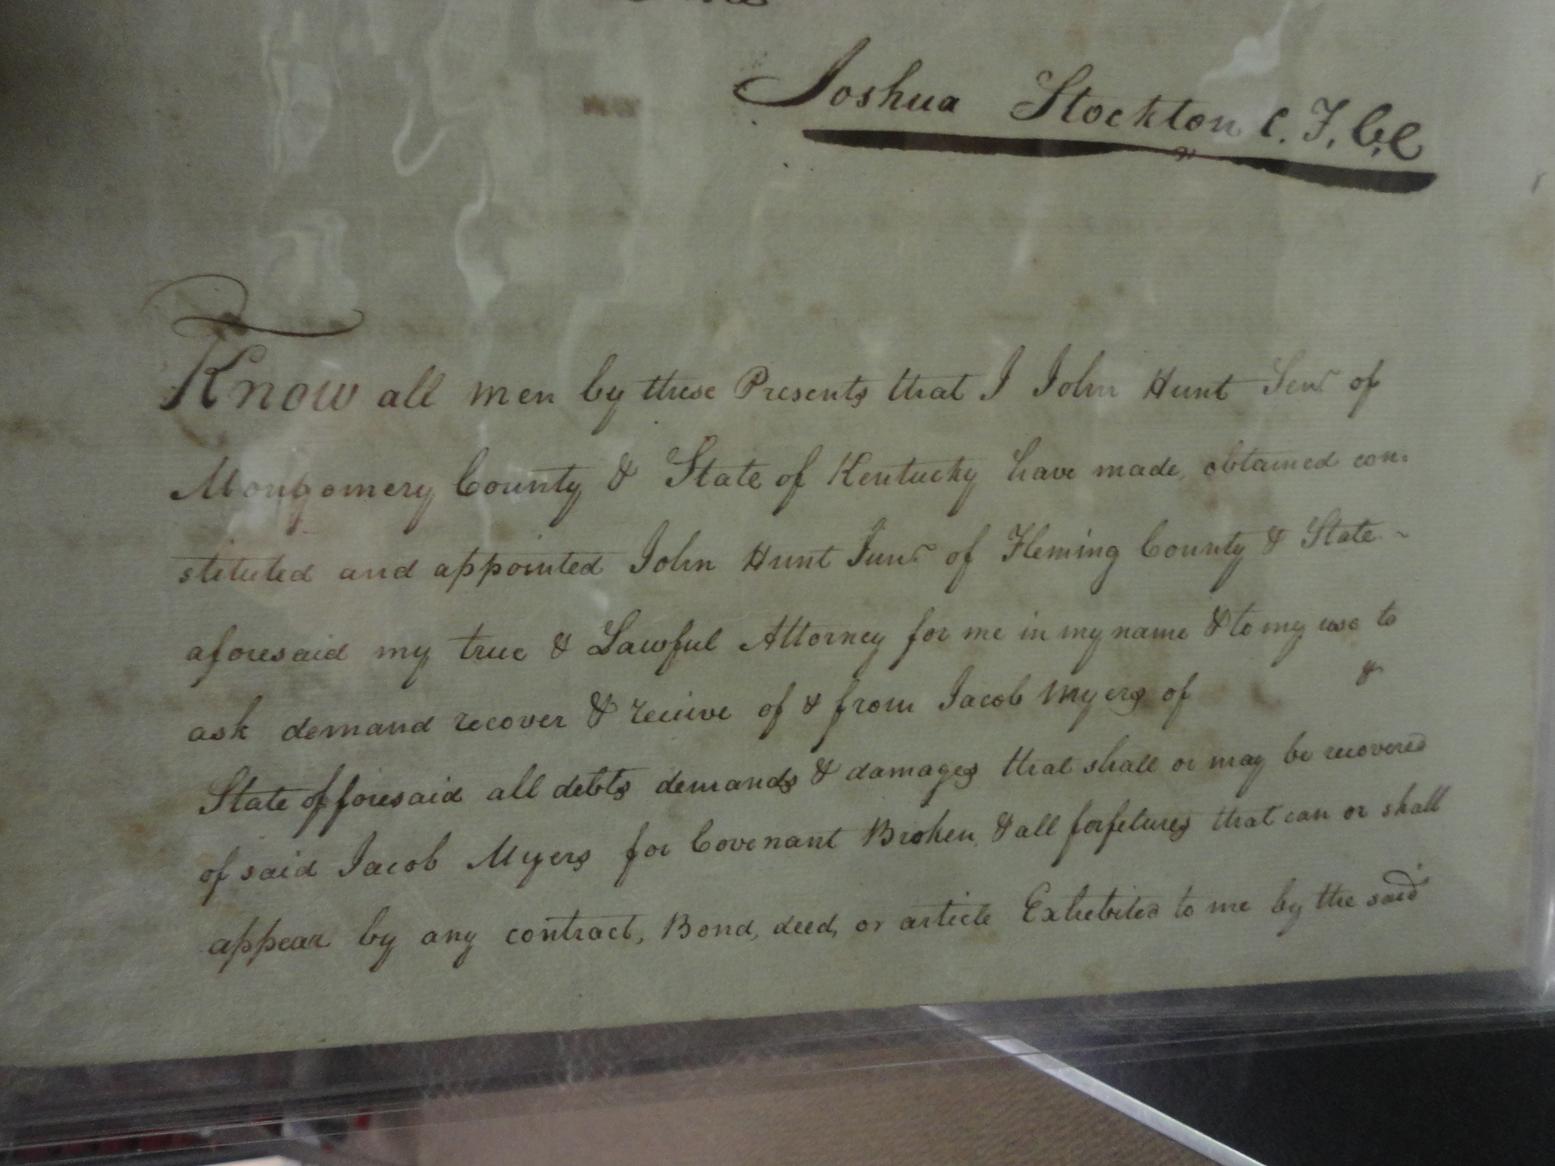 Joshua Stockton C. F. C. C
Know all men by these Presents that I John Hunt Senr of
Montgomery County & State of Kentucky have made, obtained con-
stituted and appointed John Hunt Junr of Fleming County & State
aforesaid my true & Lawful Attorney for me in my name & to my use to
ask demand recover & recieve of & from Jacob Myers of &
State offoresaid all debts demands & damages that shall or may be recovered
of said Jacob Myers for Covenant Broken, & all forfetures that can or shall
appear by any contract, Bond, deed, or article Exhebited to me by the said